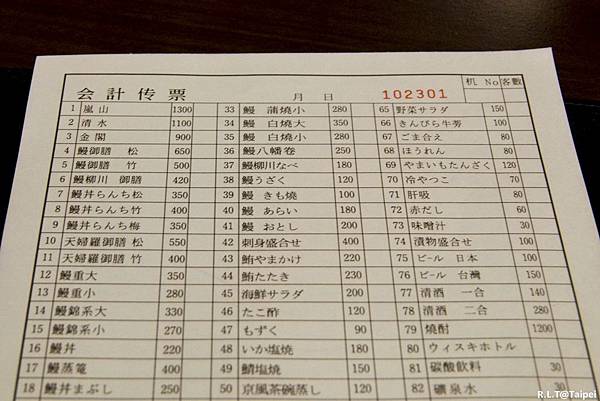 会計传票 月 日 102301 机 No 客數
1 嵐山 1300 33 鰻 蒲燒小 280 65 野菜サラダ 150
2 清水 1100 34 鰻 白燒大 350 66 きんぴら牛蒡 100
3 金閣 900 35 鰻 白燒小 280 67 ごま合え 80
4 鰻御膳 松 650 36 鰻八幡卷 250 68 ほうれん 80
5 鰻御膳 竹 500 37 鰻柳川なべ 180 69 やまいもたんざく 120
6 鰻柳川 御膳 420 38 鰻うざく 120 70 冷やつこ 70
7 鰻丼らんち松 350 39 鰻 きも燒 100 71 肝吸 80
8 鰻丼らんち竹 400 40 鰻 あらい 180 72 赤だし 60
9 鰻丼らんち梅 350 41 鰻 おとし 200 73 味噌汁 30
10 天婦羅御膳 松 550 42 刺身盛合せ 400 74 漬物盛合せ 100
11 天婦羅御膳 竹 400 43 鮪やまかけ 220 75 ビール 日本 100
12 鰻重大 350 44 鮪たたき 230 76 ビール 台灣 150
13 鰻重小 280 45 海鮮サラダ 200 77 清酒 一合 140
14 鰻錦系大 330 46 たこ酢 120 78 清酒 二合 280
15 鰻錦系小 270 47 もずく 90 79 燒酎 1200
16 鰻丼 220 48 いか塩燒 180 80 ウィスキホトル
17 鰻蒸篭 400 49 鯖塩燒 150 81 碳酸飲料 30
18 鰻丼まぶし 250 50 京風茶碗蒸し 120 82 礦泉水 30
R.L.T@Taipei